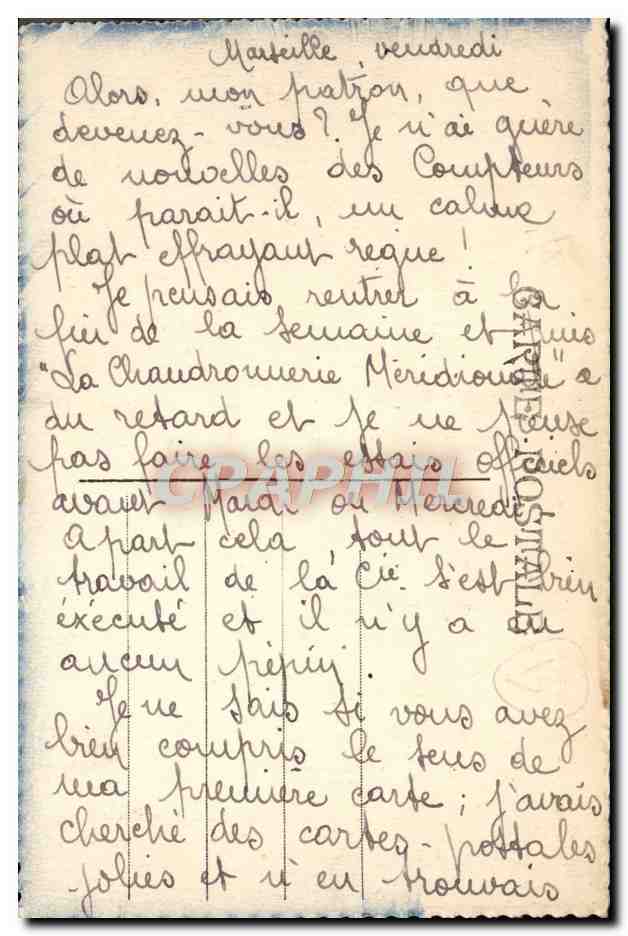 Marseille, vendredi
Alors, mon patron, que
devenez-vous? Je n'ai guère
de nouvelles des Compteurs
où parait-il, un calme
plat effrayant règne!
Je pensais rentrer à la
fin de la semaine et puis
"La Chaudronnerie Méridionale" a
du retard et je ne pense
pas faire les essais officiels
avant Mardi ou Mercredi
A part cela, tout le
travail de la Cie s'est bien
éxécuté et il n'y a eu
aucun pépin.
Je ne sais si vous avez
bien compris le sens de
ma première carte; j'avais
cherché des cartes-postales
jolies et n'en trouvais
CARTE POSTALE
CPAPHIL